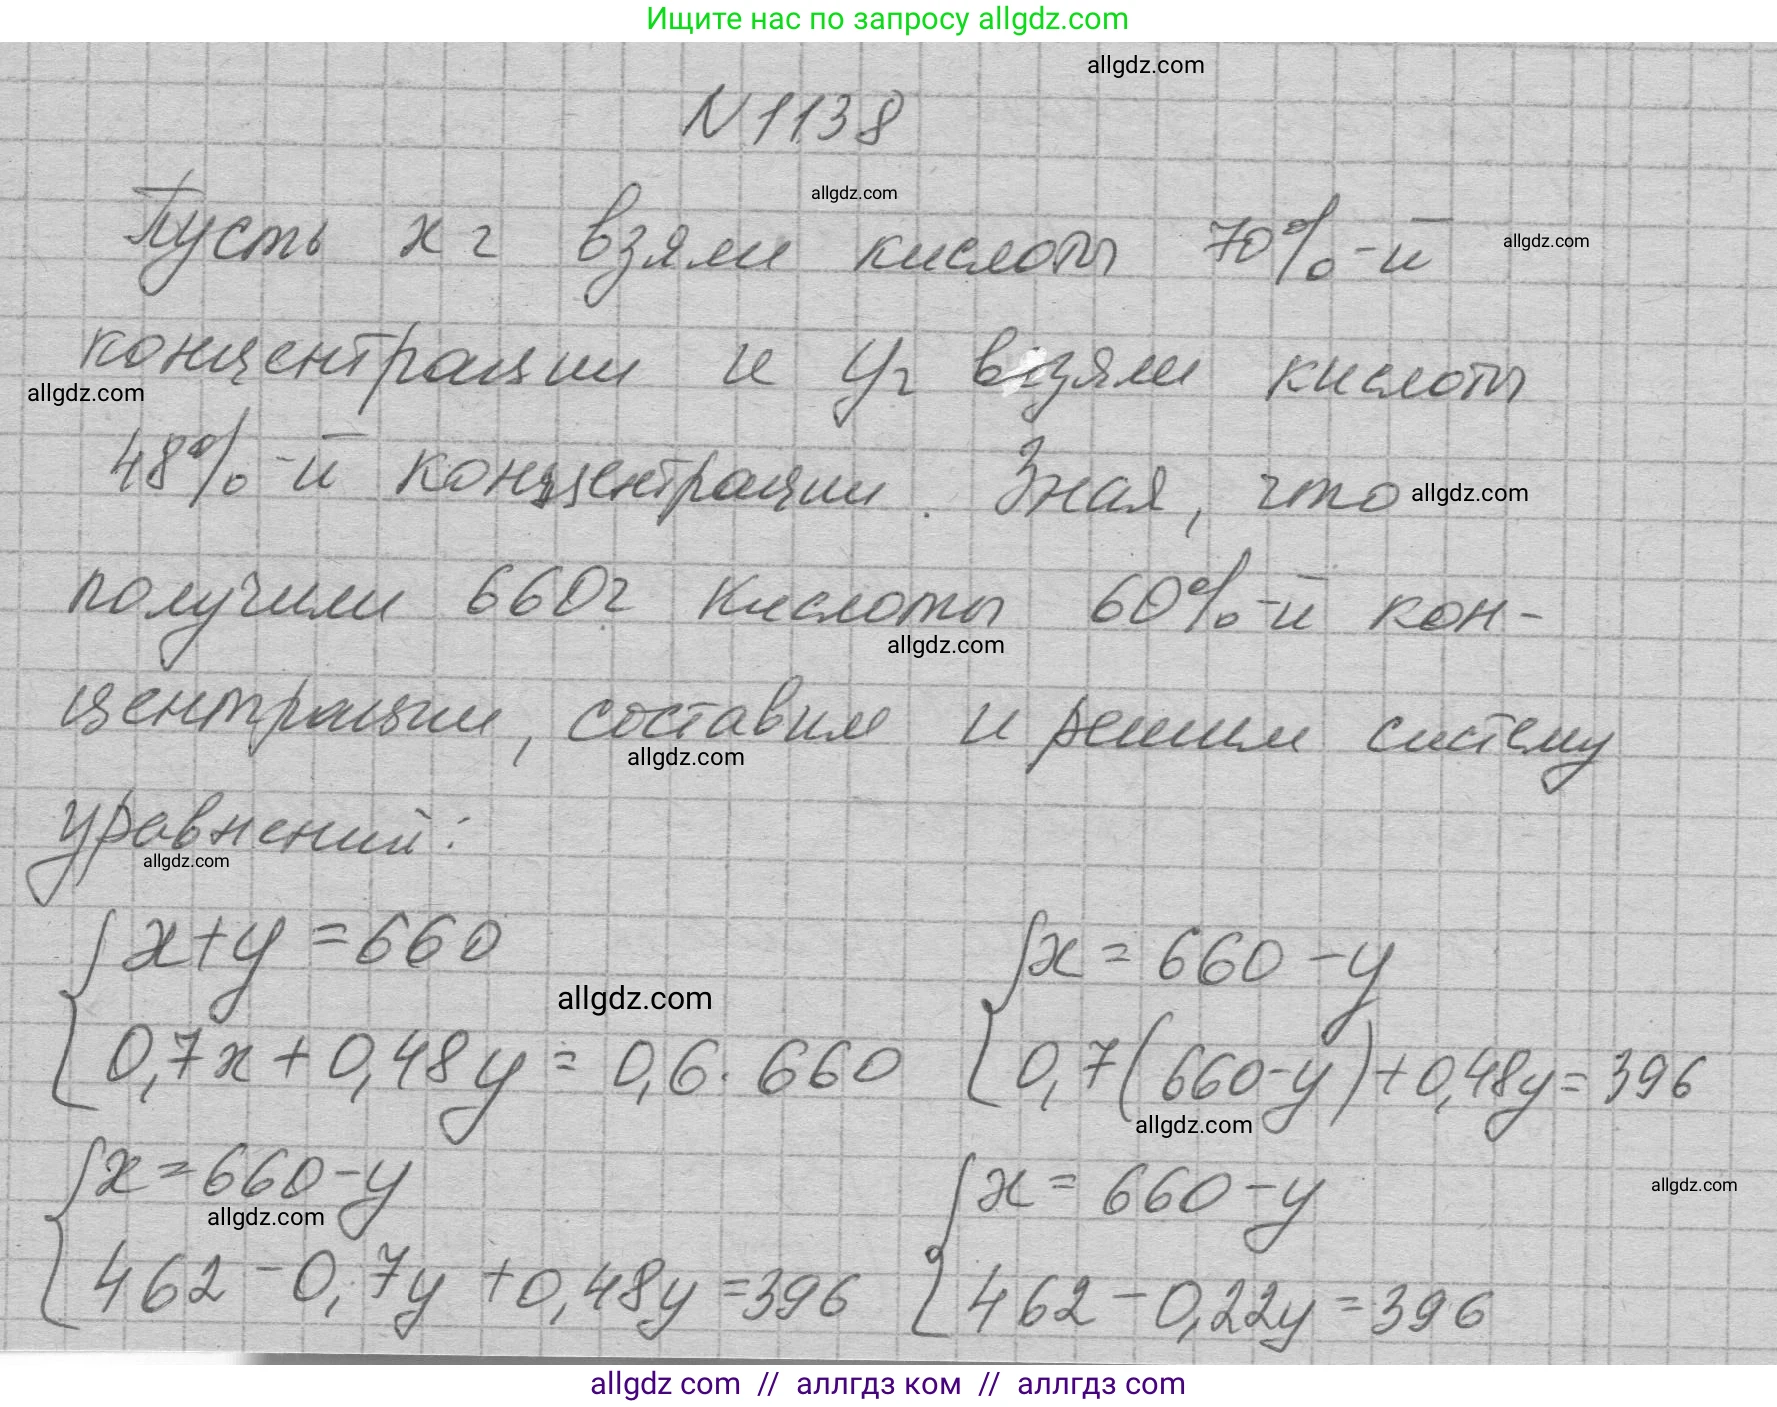 Ищите нас по запросу allgdz.com
allgdz.com
N 1138
allgdz.com
Пусть x г взяли кислоты 70%-й
allgdz.com
концентрации и y г взяли кислоты
allgdz.com
48%-й концентрации. Зная, что
allgdz.com
получили 660г кислоты 60%-й кон-
allgdz.com
центрации, составим и решим систему
allgdz.com
уравнений:
allgdz.com
{ x+y=660
{ x = 660-y
allgdz.com
0,7x+0,48y = 0,6·660
0,7(660-y)+0,48y=396
allgdz.com
{ x=660-y
{ x = 660-y
allgdz.com
allgdz.com
462-0,7y+0,48y=396
462-0,22y=396
allgdz com // аллгдз ком // аллгдз com